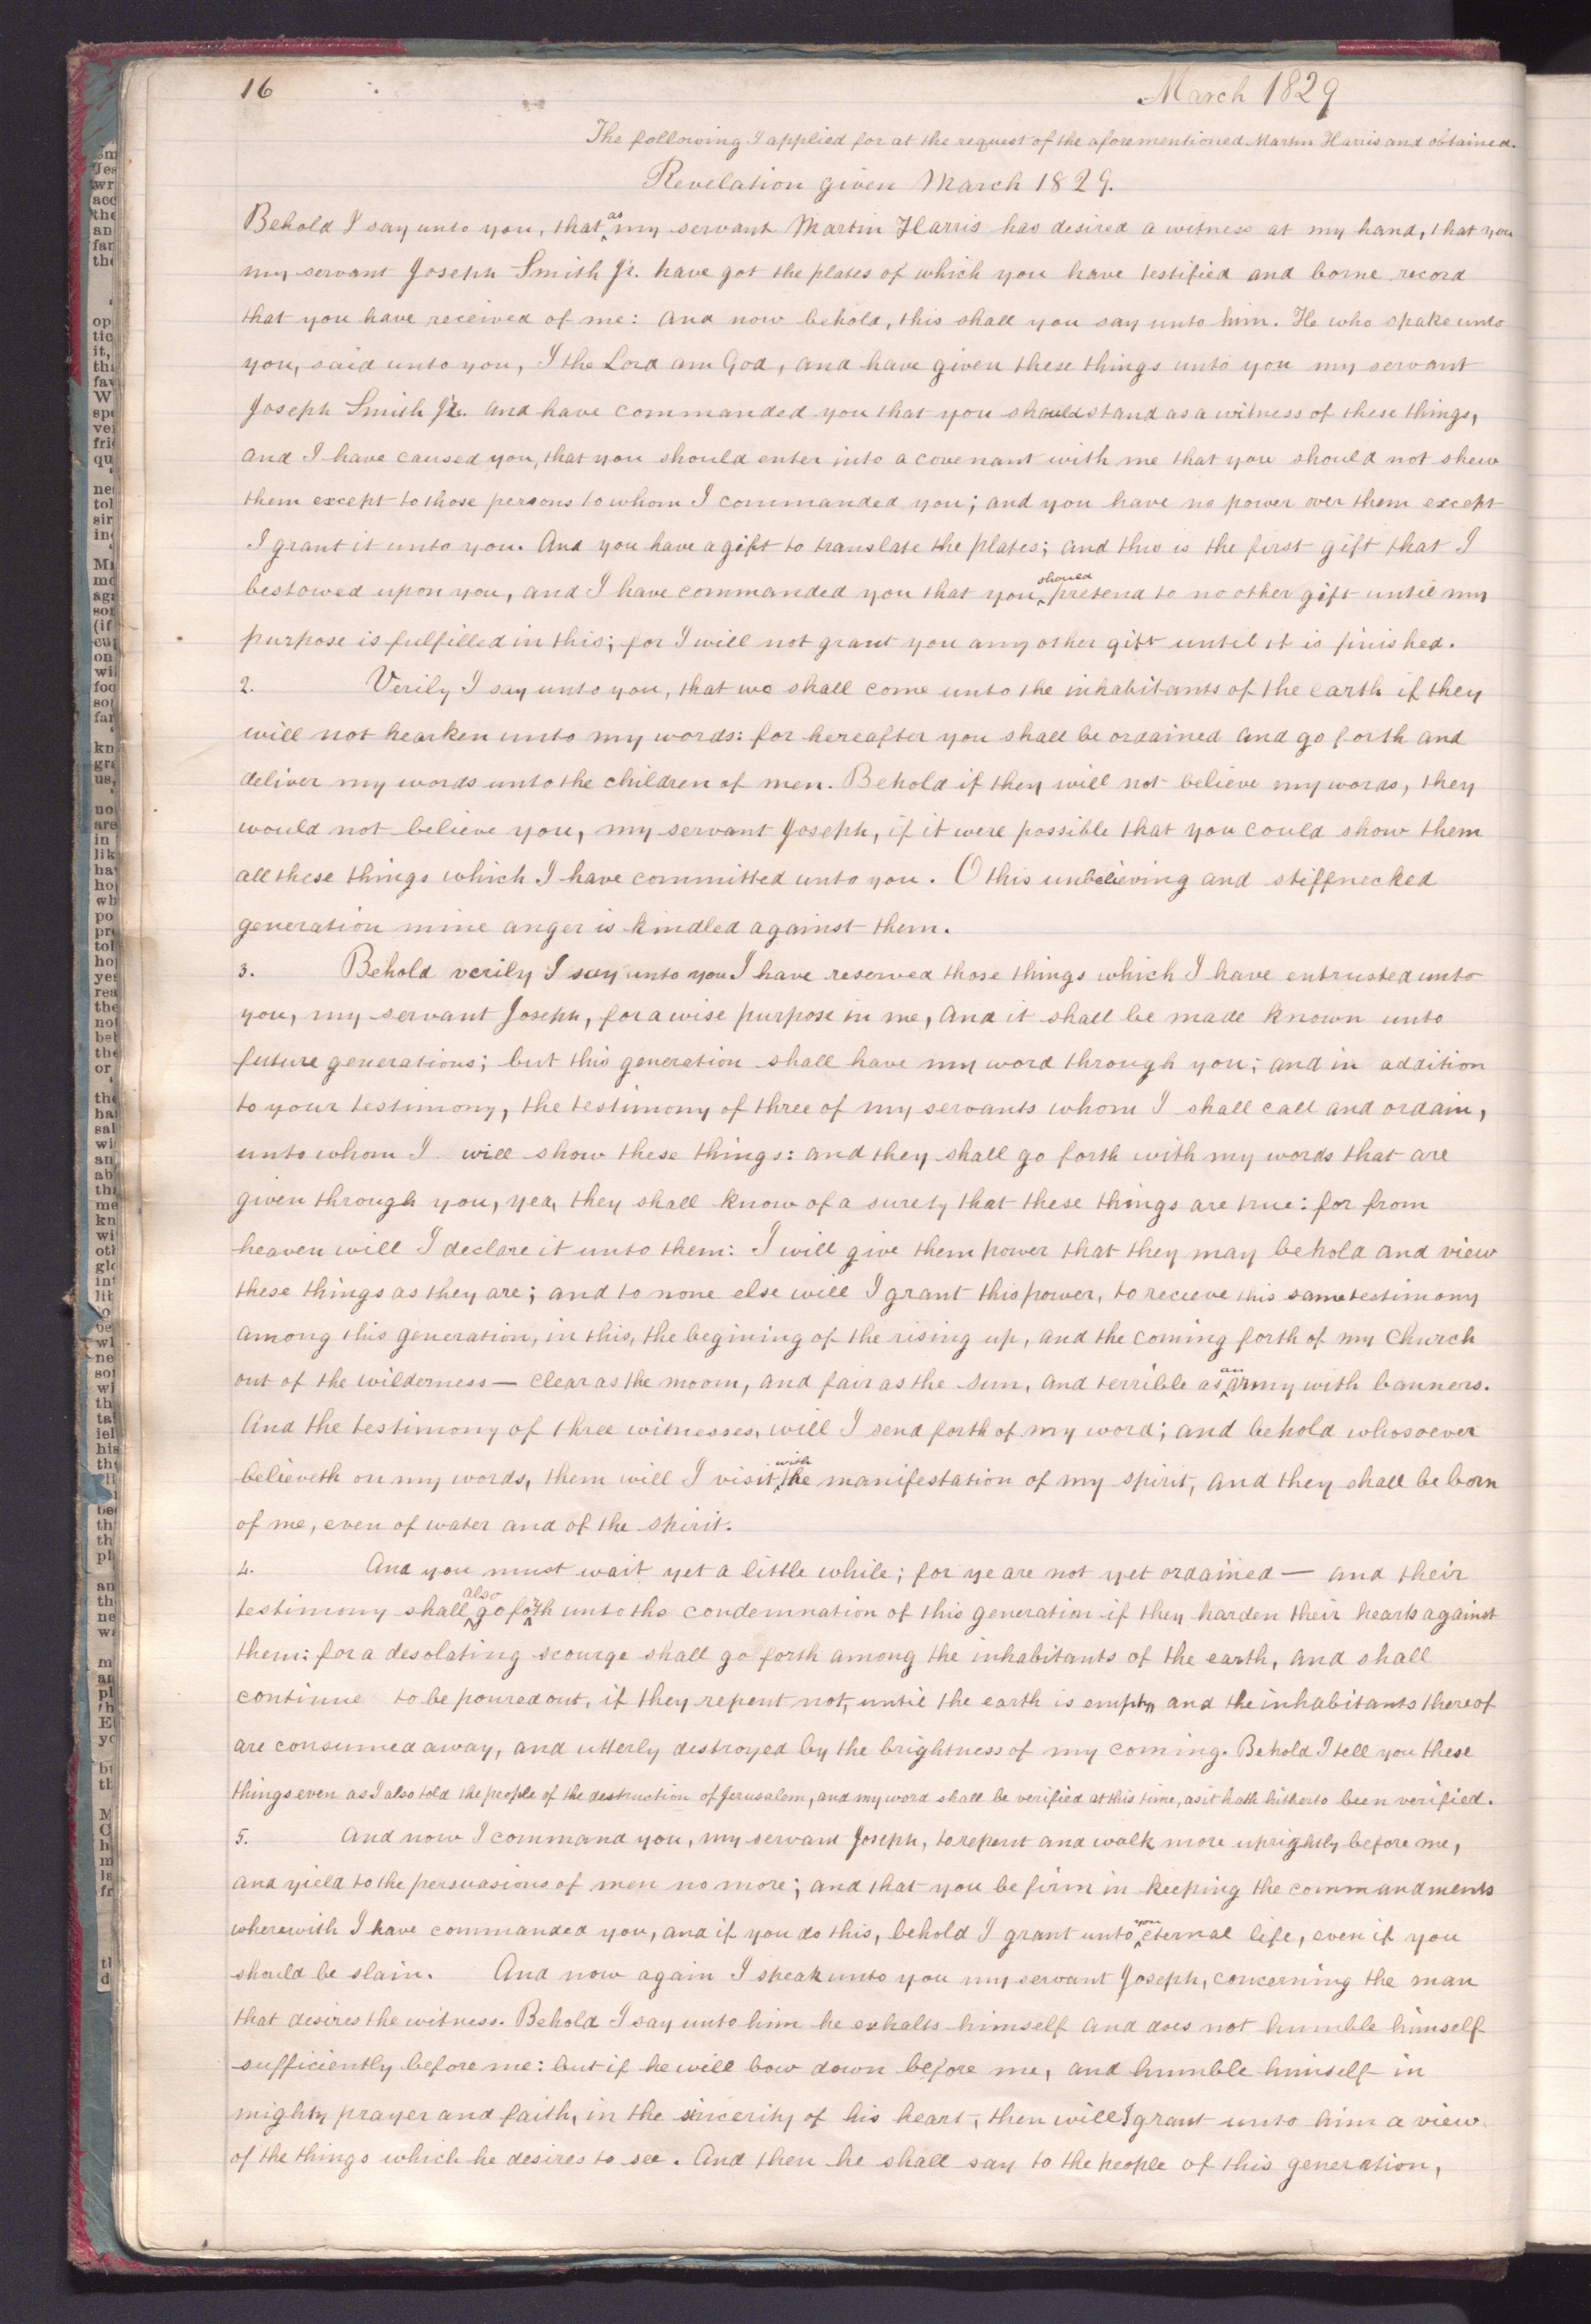 16
March 1829
The following I applied for at the request of the aforementioned Martin Harris and obtained.
Revelation given March 1829.
Behold I say unto you, that as my servant Martin Harris has desired a witness at my hand, that you
my servant Joseph Smith Jr. have got the plates of which you have testified and borne record
that you have received of me: and now behold, this shall you say unto him. He who spake unto
you, said unto you, I the Lord am God, and have given these things unto you my servant
Joseph Smith Jr. and have commanded you that you should stand as a witness of these things,
and I have caused you, that you should enter into a covenant with me that you should not shew
them except to those persons to whom I commanded you; and you have no power over them except
I grant it unto you. And you have a gift to translate the plates; and this is the first gift that I
bestowed upon you, and I have commanded you that you should pretend to no other gift until my
purpose is fulfilled in this; for I will not grant you any other gift until it is finished.
2. Verily I say unto you, that wo shall come unto the inhabitants of the earth if they
will not hearken unto my words: for hereafter you shall be ordained and go forth and
deliver my words unto the children of men. Behold if they will not believe my words, they
would not believe you, my servant Joseph, if it were possible that you could show them
all these things which I have committed unto you. O this unbelieving and stiffnecked
generation mine anger is kindled against them.
3. Behold verily I say unto you I have reserved those things which I have entrusted unto
you, my servant Joseph, for a wise purpose in me, and it shall be made known unto
future generations; but this generation shall have my word through you; and in addition
to your testimony, the testimony of three of my servants whom I shall call and ordain,
unto whom I will show these things: and they shall go forth with my words that are
given through you, yea, they shall know of a surety that these things are true: for from
heaven will I declare it unto them: I will give them power that they may behold and view
these things as they are; and to none else will I grant this power, to recieve this same testimony
among this generation, in this, the begining of the rising up, and the coming forth of my Church
out of the wilderness — clear as the moom, and fair as the sun, and terrible as an army with banners.
And the testimony of three witnesses, will I send forth of my word; and behold whosoever
believeth on my words, them will I visit with the manifestation of my spirit, and they shall be born
of me, even of water and of the spirit.
4. And you must wait yet a little while; for ye are not yet ordained — and their
testimony shall also go forth unto the condemnation of this generation if they harden their hearts against
them: for a desolating scourge shall go forth among the inhabitants of the earth, and shall
continue to be poured out, if they repent not, until the earth is empty, and the inhabitants thereof
are consumed away, and utterly destroyed by the brightness of my coming. Behold I tell you these
things even as I also told the people of the destruction of Jerusalem, and my word shall be verified at this time, as it hath hitherto been verified.
5. And now I command you, my servant Joseph, to repent and walk more uprightly before me,
and yield to the persuasions of men no more; and that you be firm in keeping the commandments
wherewith I have commanded you, and if you do this, behold I grant unto you eternal life, even if you
should be slain. And now again I speak unto you my servant Joseph, concerning the man
that desires the witness. Behold I say unto him he exhalts himself and does not humble himself
sufficiently before me: but if he will bow down before me, and humble himself in
mighty prayer and faith, in the sincerity of his heart, then will I grant unto him a view
of the things which he desires to see. And then he shall say to the people of this generation,